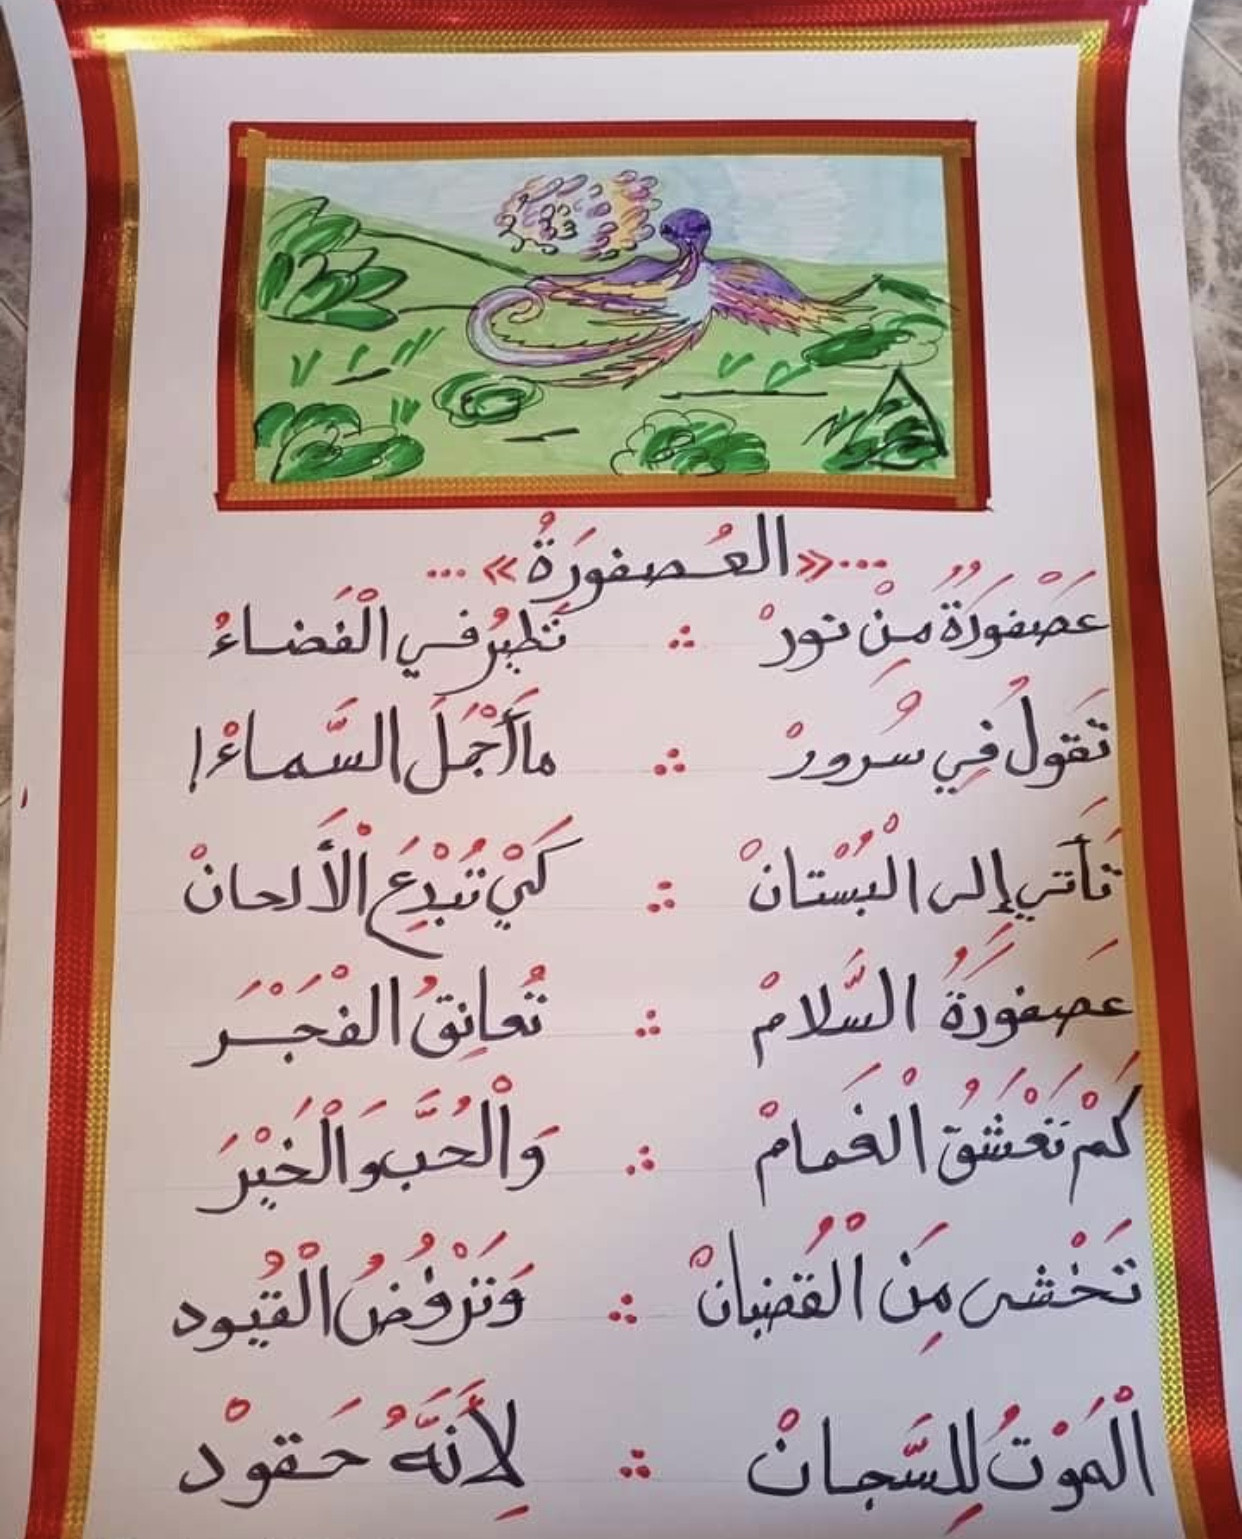 ...«العُصفورَةُ»...
عَصْفورَةٌ مِنْ نورْ ∴ تَطيرُ في الْفَضاءُ
تَقولُ فِي سُرورْ ∴ ما أَجْمَلَ السَّماءْ!
تَأتي إِلى الْبُسْتانْ ∴ كَيْ تُبْدِعَ الْأَلحانْ
عَصفورَةُ السَّلامْ ∴ تُعانِقُ الْفَجْرَ
كَمْ تَعْشَقُ الْغَمامْ ∴ وَالْحُبَّ وَالْخَيْرَ
تَخْشى مِنَ الْقُضبانْ ∴ وَتَرْفُضُ الْقُيود
الْمَوْتُ لِلسَّجانْ ∴ لِأَنَّهُ حَقودْ